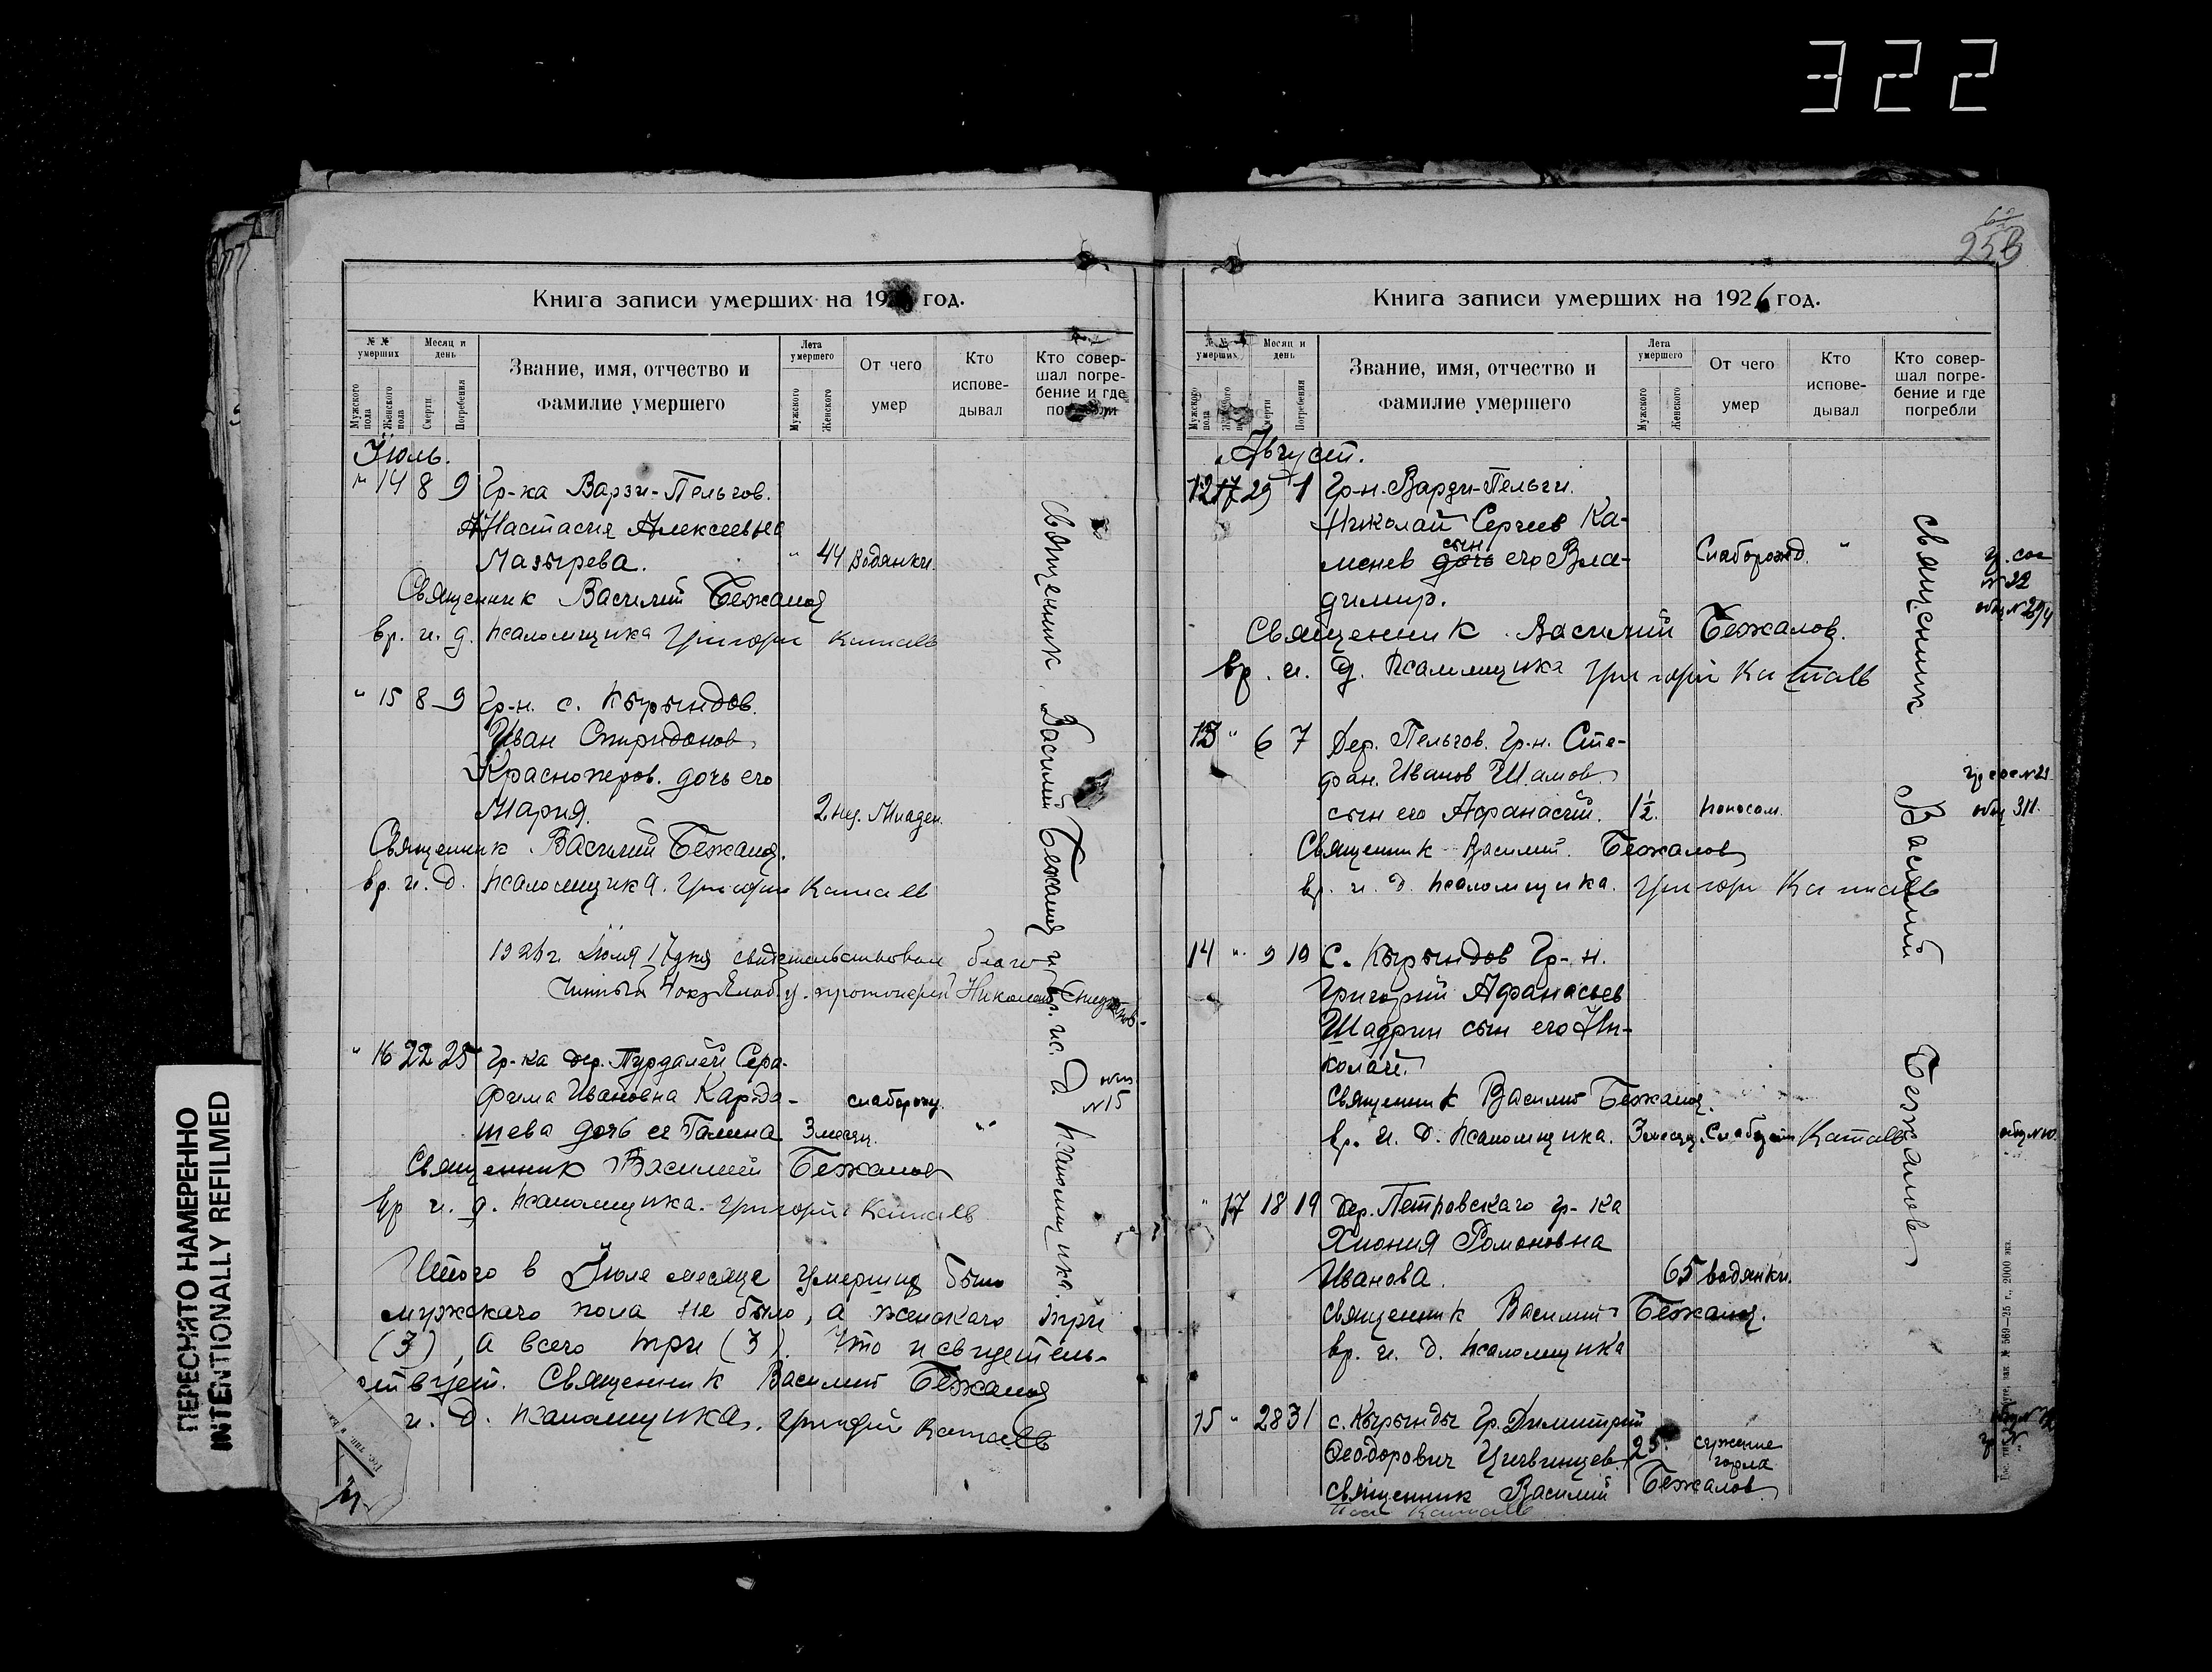 322
253
Книга записи умерших на 19 год.
№ № умерших
Месяц и день
Звание, имя, отчество и фамилие умершего
Лета умершего
От чего умер
Кто исповедывал
Кто совершал погребение и где погребли
Мужского пола
Женского пола
Смерти
Погребения
Мужского
Женского
Июль.
" 14 8 9 Гр-ка Варзи-Пельгов.
Анастасия Алексеевна
Мазырева. " 44 Водянки
Священник Василий Бежанов
вр. и. д. псаломщика Григорий
" 15 8 9 Гр-н. с. Кырындов.
Иван Спиридонов
Красноперов. дочь его
Мария. 2 нед. Младен.
Священник Василий Бежанов.
вр. и. д. псаломщика. Григорий
1926 г. Июля 17 дня свидетельствовал благо-
чинный протоиерей Николай
" 16 22 25 Гр-ка дер. Турдалей Сера-
фима Ивановна Карда-
шева дочь ее Галина 3 месяц. слаборожд. "
№ 15
Священник Василий Бежанов
вр и. д. псаломщика. Григорий
Итого в Июле месяце умерших было
мужскаго пола не было, а женскаго три
(3), а всего три (3). Что и свидетель-
ствует. Священник Василий Бежанов
и. д. псаломщика. Григорий
Священник Василий Бежанов и вр. и. д. псаломщика.
Книга записи умерших на 1926 год.
№ № умерших
Месяц и день
Звание, имя, отчество и фамилие умершего
Лета умершего
От чего умер
Кто исповедывал
Кто совершал погребение и где погребли
Мужского пола
Смерти
Погребения
Мужского
Женского
Август.
12 17 29 1 Гр-н. Варзи-Пельги.
Николай Сергеев Ка-
менев дочь сын его Вла- Слаборожд. "
димир.
№ 22
Священник Василий Бежанов.
вр. и. д. псаломщика Григорий
13 " 6 7 Дер. Пельгов. Гр-н. Сте-
фан. Иванов Шамов.
сын его Афанасий. 1½. поносом.
311
Священник Василий. Бежанов
вр. и. д. псаломщика. Григорий
14 " 9 10 С. Кырындов Гр-н.
Григорий Афанасьев
Шадрин сын его Ни-
колай.
Священник Василий Бежанов.
вр. и. д. псаломщика. 3 месяц.
" 17 18 19 Дер. Петровскаго гр-ка
Хиония Романовна
Иванова. 65 водянки.
Священник Василий Бежанов.
вр. и. д. псаломщика
15 " 28 31 с. Кырынды Гр. Димитрий
Феодорович 25. сужение
горла
Священник Василий Бежанов
Священник Василий Бежанов
ПЕРЕСНЯТО НАМЕРЕННО
INTENTIONALLY REFILMED